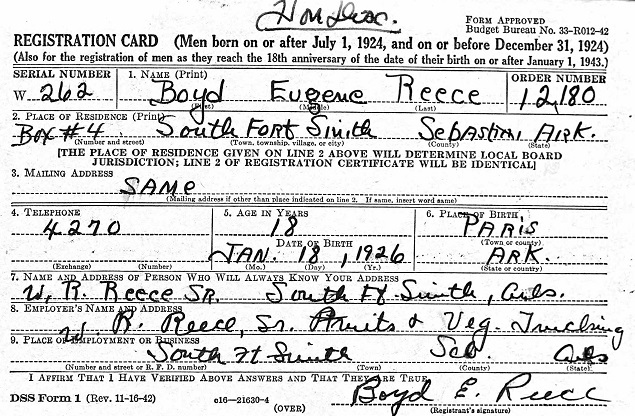 Hon Disc.
FORM APPROVED
Budget Bureau No. 33-R012-42
REGISTRATION CARD (Men born on or after July 1, 1924, and on or before December 31, 1924)
(Also for the registration of men as they reach the 18th anniversary of the date of their birth on or after January 1, 1943.)
SERIAL NUMBER 1. NAME (Print) ORDER NUMBER
W 262 Boyd Eugene Reece 12,180
(First) (Middle) (Last)
2. PLACE OF RESIDENCE (Print)
Box #4 South Fort Smith Sebastin, ARK.
(Number and street) (Town, township, village, or city) (County) (State)
[THE PLACE OF RESIDENCE GIVEN ON LINE 2 ABOVE WILL DETERMINE LOCAL BOARD
JURISDICTION; LINE 2 OF REGISTRATION CERTIFICATE WILL BE IDENTICAL]
3. MAILING ADDRESS
SAME
(Mailing address if other than place indicated on line 2. If same, insert word same)
4. TELEPHONE 5. AGE IN YEARS 6. PLACE OF BIRTH
4270 18 PARIS
DATE OF BIRTH (Town or county)
JAN. 18, 1926 ARK.
(Exchange) (Number) (Mo.) (Day) (Yr.) (State or country)
7. NAME AND ADDRESS OF PERSON WHO WILL ALWAYS KNOW YOUR ADDRESS
W. R. Reece Sr. South Ft Smith, Arks.
8. EMPLOYER'S NAME AND ADDRESS
W. R. Reece, Sr. Fruits & Veg. Trucking
9. PLACE OF EMPLOYMENT OR BUSINESS
South Ft Smith Seb. Arks
(Number and street or R. F. D. number) (Town) (County) (State)
I AFFIRM THAT I HAVE VERIFIED ABOVE ANSWERS AND THAT THEY ARE TRUE.
Boyd E. Reece
DSS Form 1 (Rev. 11-16-42) c16-21630-4
(OVER) (Registrant's signature)